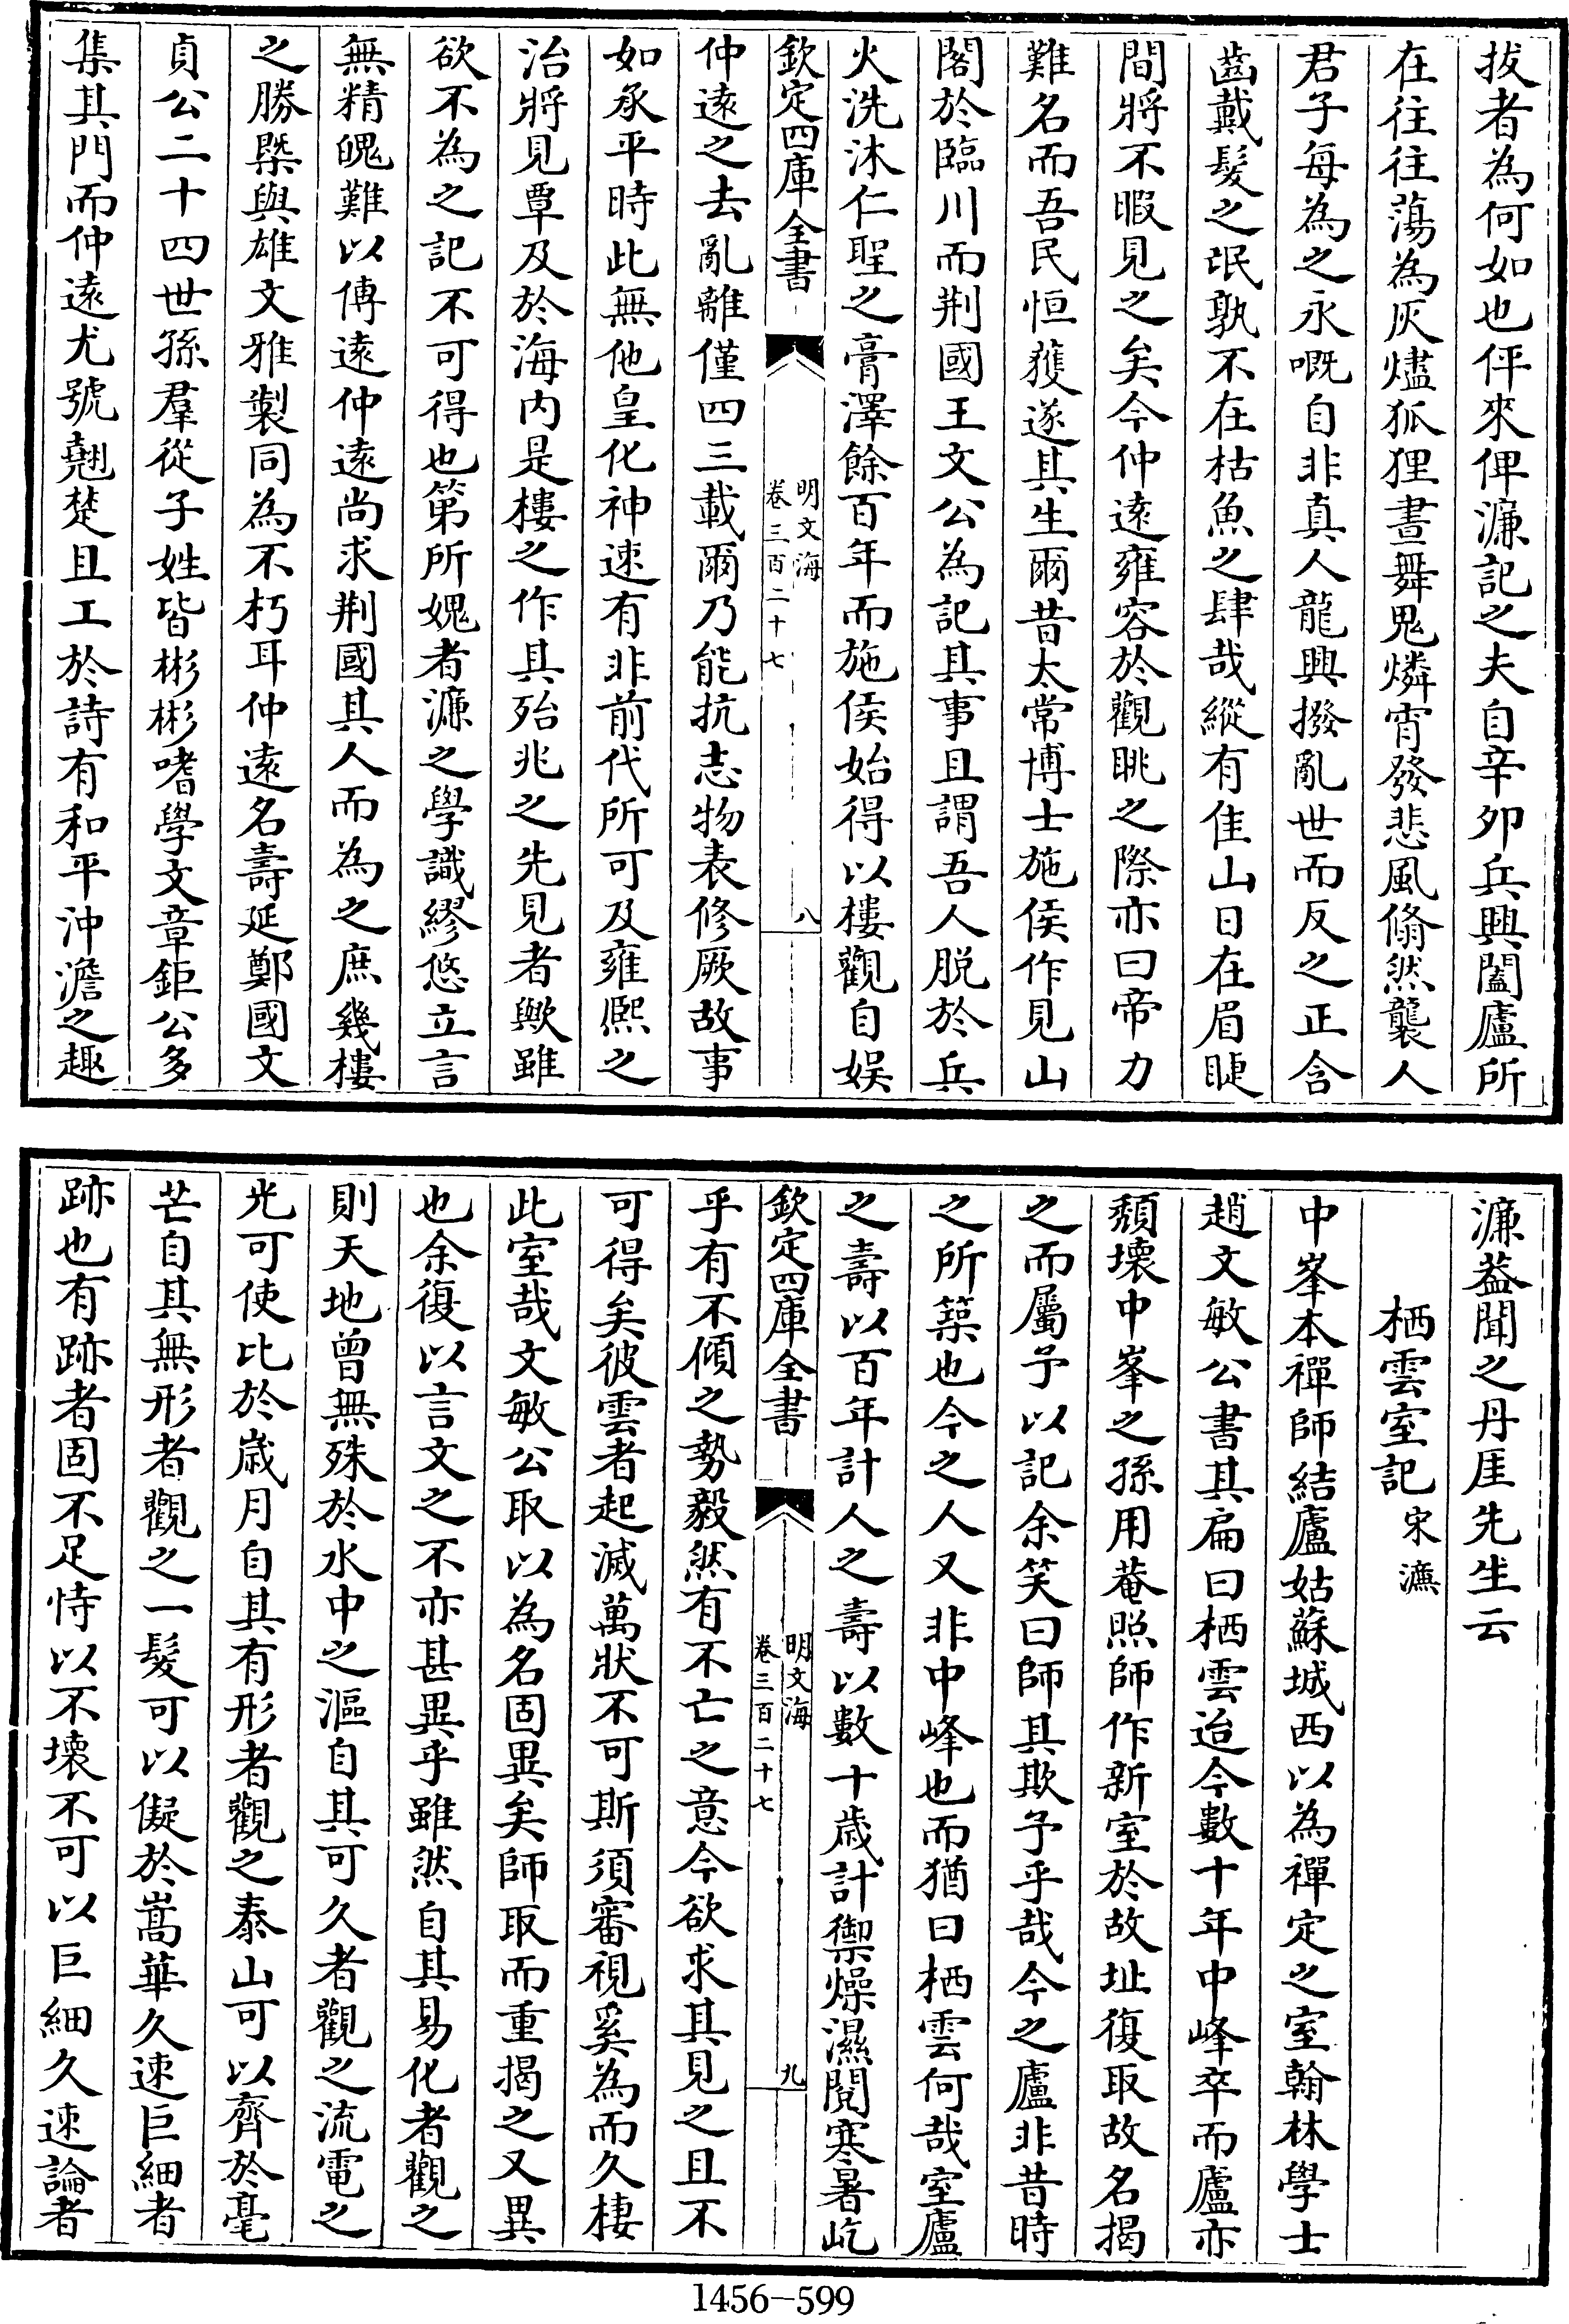 拔者為何如也伻來俾濂記之夫自辛夘兵興闔廬所
在往往蕩為灰燼狐狸晝舞鬼燐宵發悲風翛然襲人
君子每為之永嘅自非真人龍興撥亂世而反之正含
齒戴髮之氓孰不在枯魚之肆哉縱有佳山日在眉睫
間將不暇見之矣今仲遠雍容於觀眺之際亦曰帝力
難名而吾民恒獲遂其生爾昔太常博士施侯作見山
閣於臨川而荆國王文公為記其事且謂吾人脱於兵
火洗沐仁聖之膏澤餘百年而施侯始得以樓觀自娱
欽定四庫全書
明文海
卷三百二十七
八
仲遠之去亂離僅四三載爾乃能抗志物表修厥故事
如承平時此無他皇化神速有非前代所可及雍熙之
治將見覃及於海内是樓之作其殆兆之先見者歟雖
欲不為之記不可得也第所媿者濂之學識繆悠立言
無精魄難以傳遠仲遠尚求荆國其人而為之庶幾樓
之勝槩與雄文雅製同為不朽耳仲遠名壽延鄭國文
貞公二十四世孫羣從子姓皆彬彬嗜學文章鉅公多
集其門而仲遠尤號翹楚且工於詩有和平沖澹之趣
濂葢聞之丹厓先生云
栖雲室記 宋濂
中峯本禪師結廬姑蘇城西以為禪定之室翰林學士
趙文敏公書其扁曰栖雲迨今數十年中峰卒而廬亦
頽壊中峯之孫用菴照師作新室於故址復取故名揭
之而屬予以記余笑曰師其欺予乎哉今之廬非昔時
之所築也今之人又非中峰也而猶曰栖雲何哉室廬
之壽以百年計人之壽以數十歲計禦燥濕閲寒暑屹
欽定四庫全書
明文海
卷三百二十七
九
乎有不傾之勢毅然有不亡之意今欲求其見之且不
可得矣彼雲者起滅萬狀不可斯須審視奚為而久棲
此室哉文敏公取以為名固異矣師取而重揭之又異
也余復以言文之不亦甚異乎雖然自其易化者觀之
則天地曾無殊於水中之漚自其可久者觀之流電之
光可使比於歲月自其有形者觀之泰山可以齊於毫
芒自其無形者觀之一髮可以儗於嵩華久速巨細者
跡也有跡者固不足恃以不壊不可以巨細久速論者
1456-599